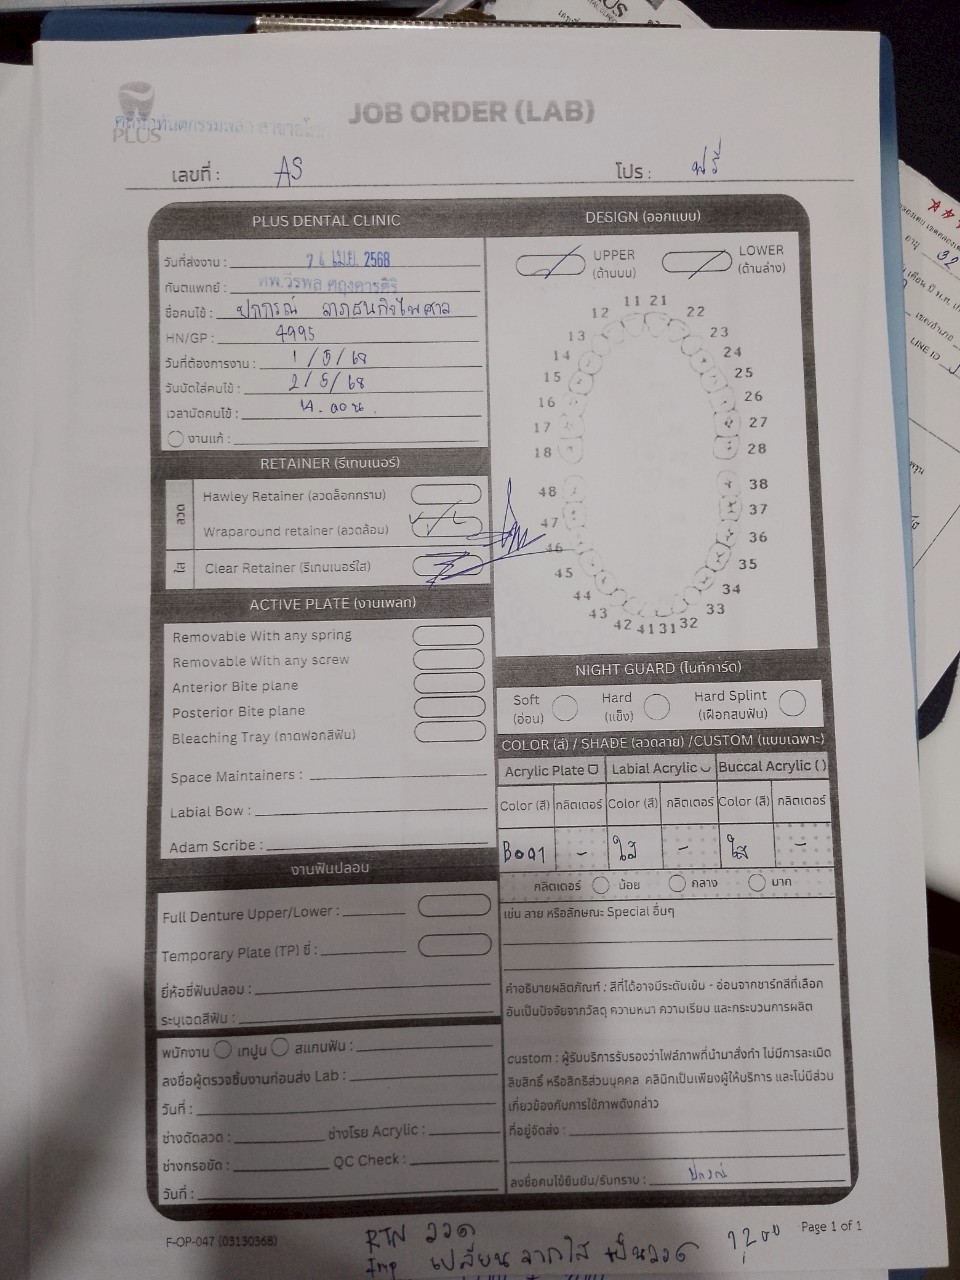 PLUS
JOB ORDER (LAB)
เลขที่ : AS
โปร : ฟรี
PLUS DENTAL CLINIC
วันที่ส่งงาน : 26 เม.ย. 2568
ทันตแพทย์ :
ชื่อคนไข้ : ปภาภรณ์
HN/GP : 4995
วันที่ต้องการงาน : 1/5/68
วันนัดใส่คนไข้ : 2/5/68
เวลานัดคนไข้ :
งานแก้ :
RETAINER (รีเทนเนอร์)
ลวด
Hawley Retainer (ลวดล็อกกราม)
Wraparound retainer (ลวดล้อม)
ใส
Clear Retainer (รีเทนเนอร์ใส)
ACTIVE PLATE (งานเพลท)
Removable With any spring
Removable With any screw
Anterior Bite plane
Posterior Bite plane
Bleaching Tray (ถาดฟอกสีฟัน)
Space Maintainers :
Labial Bow :
Adam Scribe :
งานฟันปลอม
Full Denture Upper/Lower :
Temporary Plate (TP) ซี่ :
ยี่ห้อซี่ฟันปลอม :
ระบุเฉดสีฟัน :
พนักงาน เทปูน สแกนฟัน :
ลงชื่อผู้ตรวจชิ้นงานก่อนส่ง Lab :
วันที่ :
ช่างดัดลวด : ช่างโรย Acrylic :
ช่างกรอขัด : QC Check :
วันที่ :
DESIGN (ออกแบบ)
UPPER (ด้านบน)
LOWER (ด้านล่าง)
11 21
12 22
13 23
14 24
15 25
16 26
17 27
18 28
48 38
47 37
46 36
45 35
44 34
43 33
42 41 31 32
NIGHT GUARD (ไนท์การ์ด)
Soft (อ่อน)
Hard (แข็ง)
Hard Splint (เฝือกสบฟัน)
COLOR (สี) / SHADE (ลวดลาย) /CUSTOM (แบบเฉพาะ)
Acrylic Plate Labial Acrylic Buccal Acrylic ( )
Color (สี) กลิตเตอร์ Color (สี) กลิตเตอร์ Color (สี) กลิตเตอร์
- ใส - ใส -
กลิตเตอร์ น้อย กลาง มาก
เช่น ลาย หรือลักษณะ Special อื่นๆ
คำอธิบายผลิตภัณฑ์ : สีที่ได้อาจมีระดับเข้ม - อ่อนจากชาร์ทสีที่เลือก
อันเป็นปัจจัยจากวัสดุ ความหนา ความเรียบ และกระบวนการผลิต
custom : ผู้รับบริการรับรองว่าไฟล์ภาพที่นำมาสั่งทำ ไม่มีการละเมิด
ลิขสิทธิ์ หรือสิทธิส่วนบุคคล คลินิกเป็นเพียงผู้ให้บริการ และไม่มีส่วน
เกี่ยวข้องกับการใช้ภาพดังกล่าว
ที่อยู่จัดส่ง :
ลงชื่อคนไข้ยืนยัน/รับทราบ :
F-OP-047 (03130368)
Page 1 of 1
RTN ลวด
Imp เปลี่ยนจากใส เป็นลวด
LINE ID